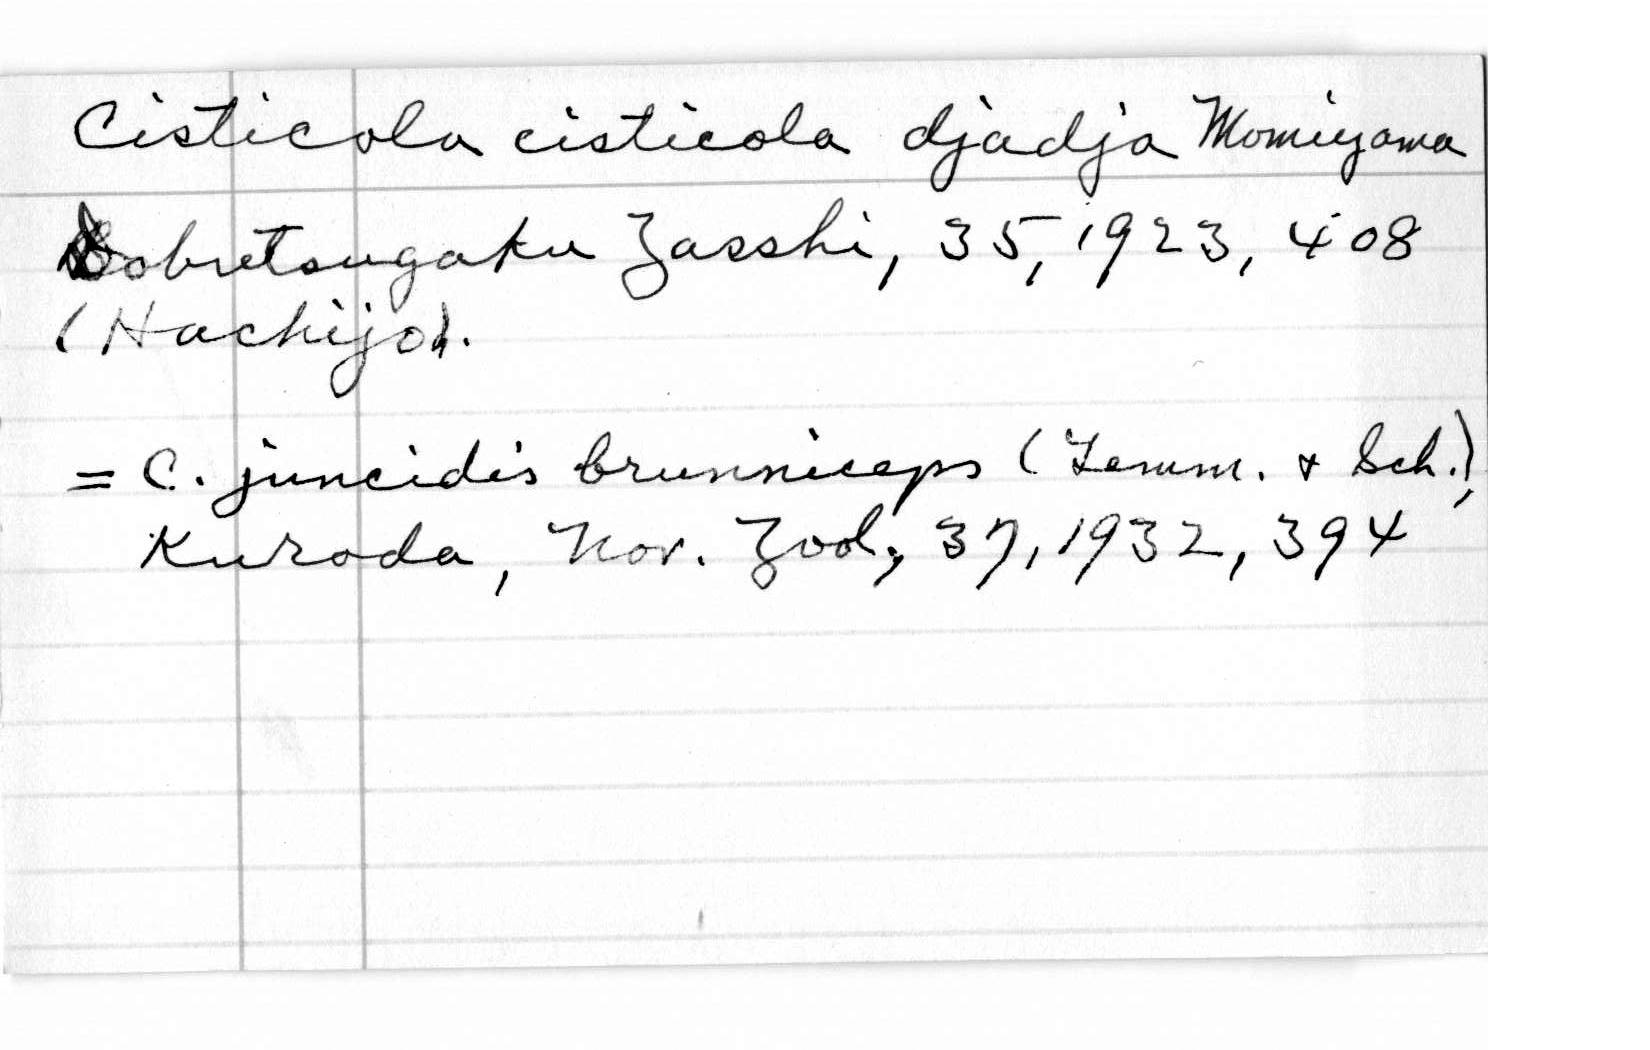 Cisticola cisticola djadja Momiyama
Dobutsugaku Zasshi, 35, 1923, 408
(Hachijo).
= C. juncidis brunniceps (Temm. & Sch.),
Kuroda, Nov. Zool., 37, 1932, 394